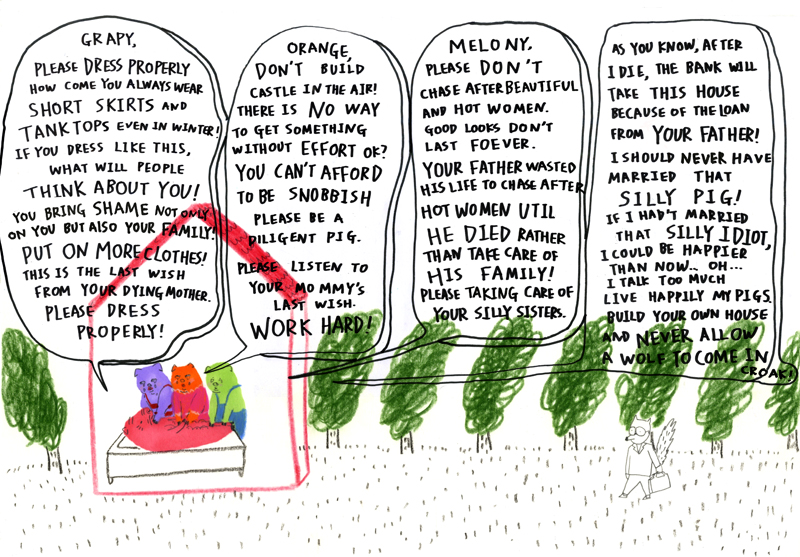 GRAPY,
PLEASE DRESS PROPERLY
HOW COME YOU ALWAYS WEAR
SHORT SKIRTS AND
TANKTOPS EVEN IN WINTER!
IF YOU DRESS LIKE THIS,
WHAT WILL PEOPLE
THINK ABOUT YOU!
YOU BRING SHAME NOT ONLY
ON YOU BUT ALSO YOUR FAMILY!
PUT ON MORE CLOTHES!
THIS IS THE LAST WISH
FROM YOUR DYING MOTHER.
PLEASE DRESS
PROPERLY!
ORANGE,
DON'T BUILD
CASTLE IN THE AIR!
THERE IS NO WAY
TO GET SOMETHING
WITHOUT EFFORT OK?
YOU CAN'T AFFORD
TO BE SNOBBISH
PLEASE BE A
DILIGENT PIG.
PLEASE LISTEN TO
YOUR MOMMY'S
LAST WISH.
WORK HARD!
MELONY.
PLEASE DON'T
CHASE AFTER BEAUTIFUL
AND HOT WOMEN.
GOOD LOOKS DON'T
LAST FOEVER.
YOUR FATHER WASTED
HIS LIFE TO CHASE AFTER
HOT WOMEN UTIL
HE DIED RATHER
THAN TAKE CARE OF
HIS FAMILY!
PLEASE TAKING CARE OF
YOUR SILLY SISTERS.
AS YOU KNOW, AFTER
I DIE, THE BANK WILL
TAKE THIS HOUSE
BECAUSE OF THE LOAN
FROM YOUR FATHER!
I SHOULD NEVER HAVE
MARRIED THAT
SILLY PIG!
IF I HAD'T MARRIED
THAT SILLY IDIOT,
I COULD BE HAPPIER
THAN NOW... OH...
I TALK TOO MUCH
LIVE HAPPILY MY PIGS.
BUILD YOUR OWN HOUSE
AND NEVER ALLOW
A WOLF TO COME IN
CROAK!